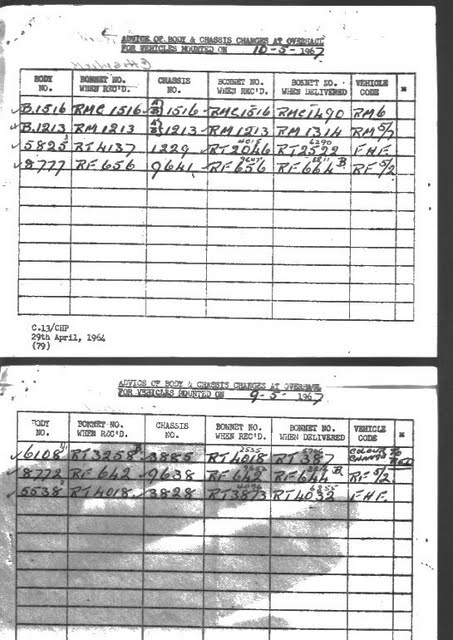 ADVICE OF BODY & CHASSIS CHANGES AT OVERHAUL
FOR VEHICLES MOUNTED ON 10-5-1967
BODY NO. BONNET NO. WHEN REC'D. CHASSIS NO. BONNET NO. WHEN REC'D. BONNET NO. WHEN DELIVERED VEHICLE CODE
B.1516 RMC 1516 1516 RMC 1516 RMC 1490 RM6
B.1213 RM 1213 1213 RM 1213 RM 1314 RM 5/7
5825 RT 4137 1229 RT 2046 RT 2522 FHF.
8777 RF 656 9641 RF 656 RF 664 B RF 5/2
C.13/CHP
29th April, 1964
(79)
ADVICE OF BODY & CHASSIS CHANGES AT OVERHAUL
FOR VEHICLES MOUNTED ON 9-5-1967
BODY NO. BONNET NO. WHEN REC'D. CHASSIS NO. BONNET NO. WHEN REC'D. BONNET NO. WHEN DELIVERED VEHICLE CODE
6108 RT 3258 3885 RT 4018 RT 387 COLOUR CHANGE TO RED
8772 RF 642 9638 RF 642 RF 644 B RF 5/2
5538 RT 4018 3828 RT 3873 RT 4032 FHF.